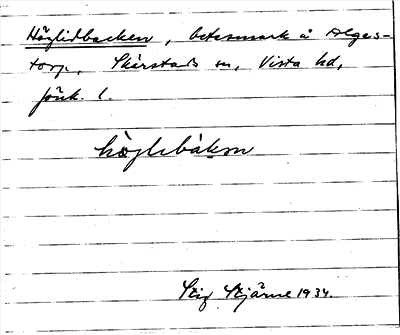 Höglidbacken, betesmark å Alges-
torp, Skärstads sn, Vista hd,
Jönk. l.
höglibàkən
Stig Stjärne 1934.